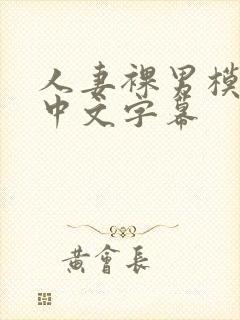 人妻裸男模
中文字幕
黄會長